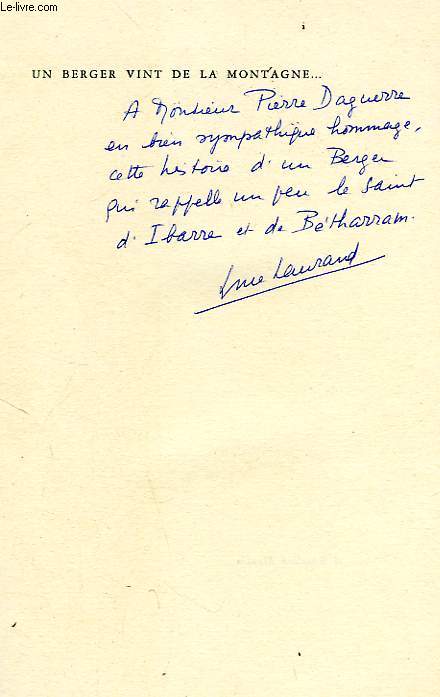 Le-livre.com
UN BERGER VINT DE LA MONTAGNE...
A Monsieur Pierre Daguerre
en bien sympathique hommage,
cette histoire d'un Berger
qui rappelle un peu le Saint
d'Ibarre et de Bétharram.
Luce Laurand